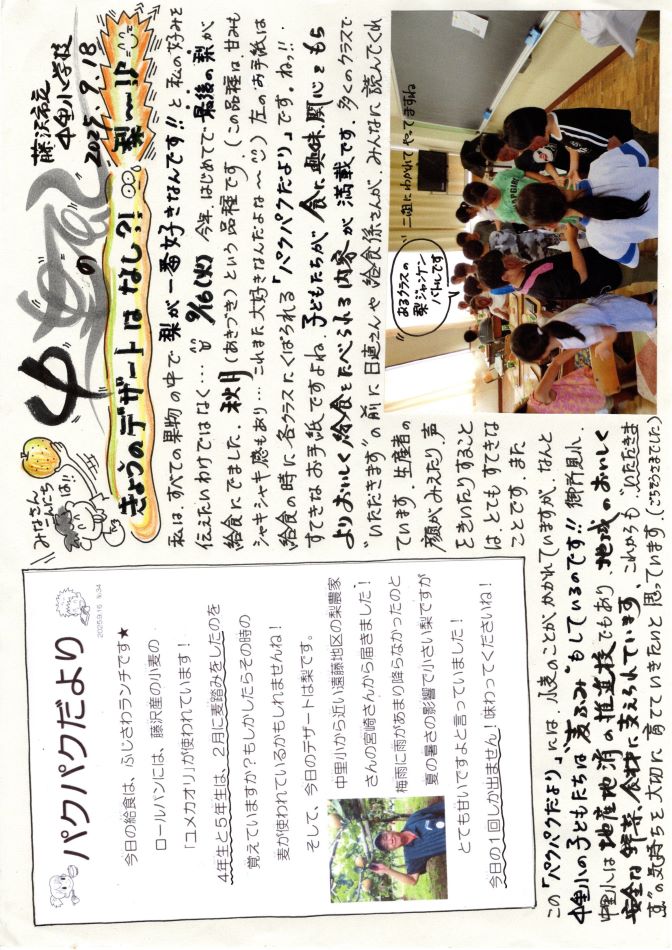 藤沢市立
中里小学校
2025.9.18
中
の
みなさん
こんにちは!!
きょうのデザートはなし?! 梨〜!!
私は、すべての果物の中で梨が一番好きなんです!!と私の好みを
伝えたいわけではなく… 9/16(火)今年、はじめてで最後の梨が
給食にでました。秋月(あきづき)という品種です。(この品種は、甘みも
シャキシャキ感もあり…これまた大好きなんだよな〜)左のお手紙は
給食の時に各クラスにくばられる「パクパクだより」です。ねっ!!
すてきなお手紙ですよね。子どもたちが食に興味、関心をもち
よりおいしく給食をたべられる内容が満載です。多くのクラスで
"いただきます"の前に日直さんや給食係さんが、みんなに読んでくれ
ています。生産者の
顔がみえたり、声
をきいたりすること
はとてもすてきな
ことです。また
あるクラスの
梨ジャンケン
バトルです
二組にわかれてやってますね
パクパクだより
2025.9.16 №34
今日の給食は、ふじさわランチです★
ロールパンには、藤沢産の小麦の
「ユメカオリ」が使われています!
4年生と5年生は、2月に麦踏みをしたのを
覚えていますか?もしかしたらその時の
麦が使われているかもしれませんね!
そして、今日のデザートは梨です。
中里小から近い遠藤地区の梨農家
さんの宮崎さんから届きました!
梅雨に雨があまり降らなかったのと
夏の暑さの影響で小さい梨ですが
とても甘いですよと言っていました!
今日の1回しか出ません!味わってくださいね!
この「パクパクだより」には、小麦のことが、かかれていますが、なんと
中里小の子どもたちは"麦ふみ"もしているのです!! 御所見小、
中里小は地産地消の推進校でもあり、地域のおいしく
安全な野菜、食材に支えられています。これからも"いただきま
す"の気持ちを大切に育てていきたいと思っています(ごちそうさまでした)